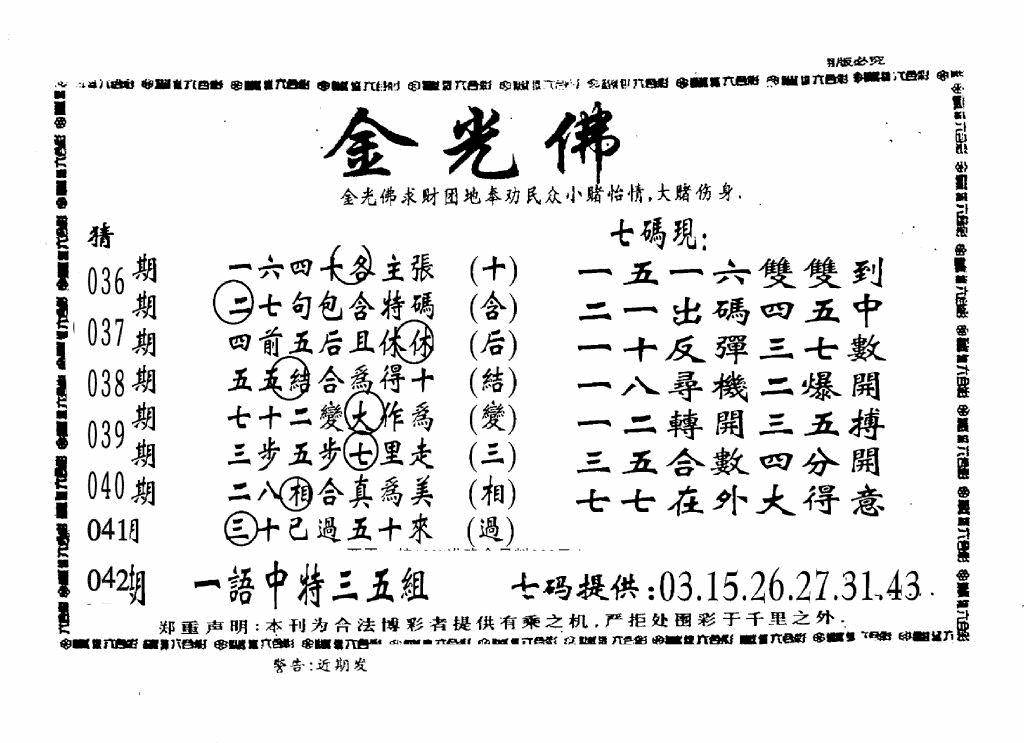 版必究
金光佛
金光佛求财团地奉劝民众小赌怡情,大赌伤身.
猜
七碼現:
036期 一六四十各主張 (十) 一五一六雙雙到
期 二七句包含特碼 (含) 二一出碼四五中
037期 四前五后且休休 (后) 一十反彈三七數
038期 五五結合爲得十 (結) 一八尋機二爆開
039期 七十二變大作爲 (變) 一二轉開三五搏
期 三步五步七里走 (三) 三五合數四分開
040期 二八相合真爲美 (相) 七七在外大得意
041月 三十已過五十來 (過)
042期 一語中特三五組 七码提供:03.15.26.27.31.43
郑重声明:本刊为合法博彩者提供有乘之机,严拒处围彩于千里之外.
警告:近期发